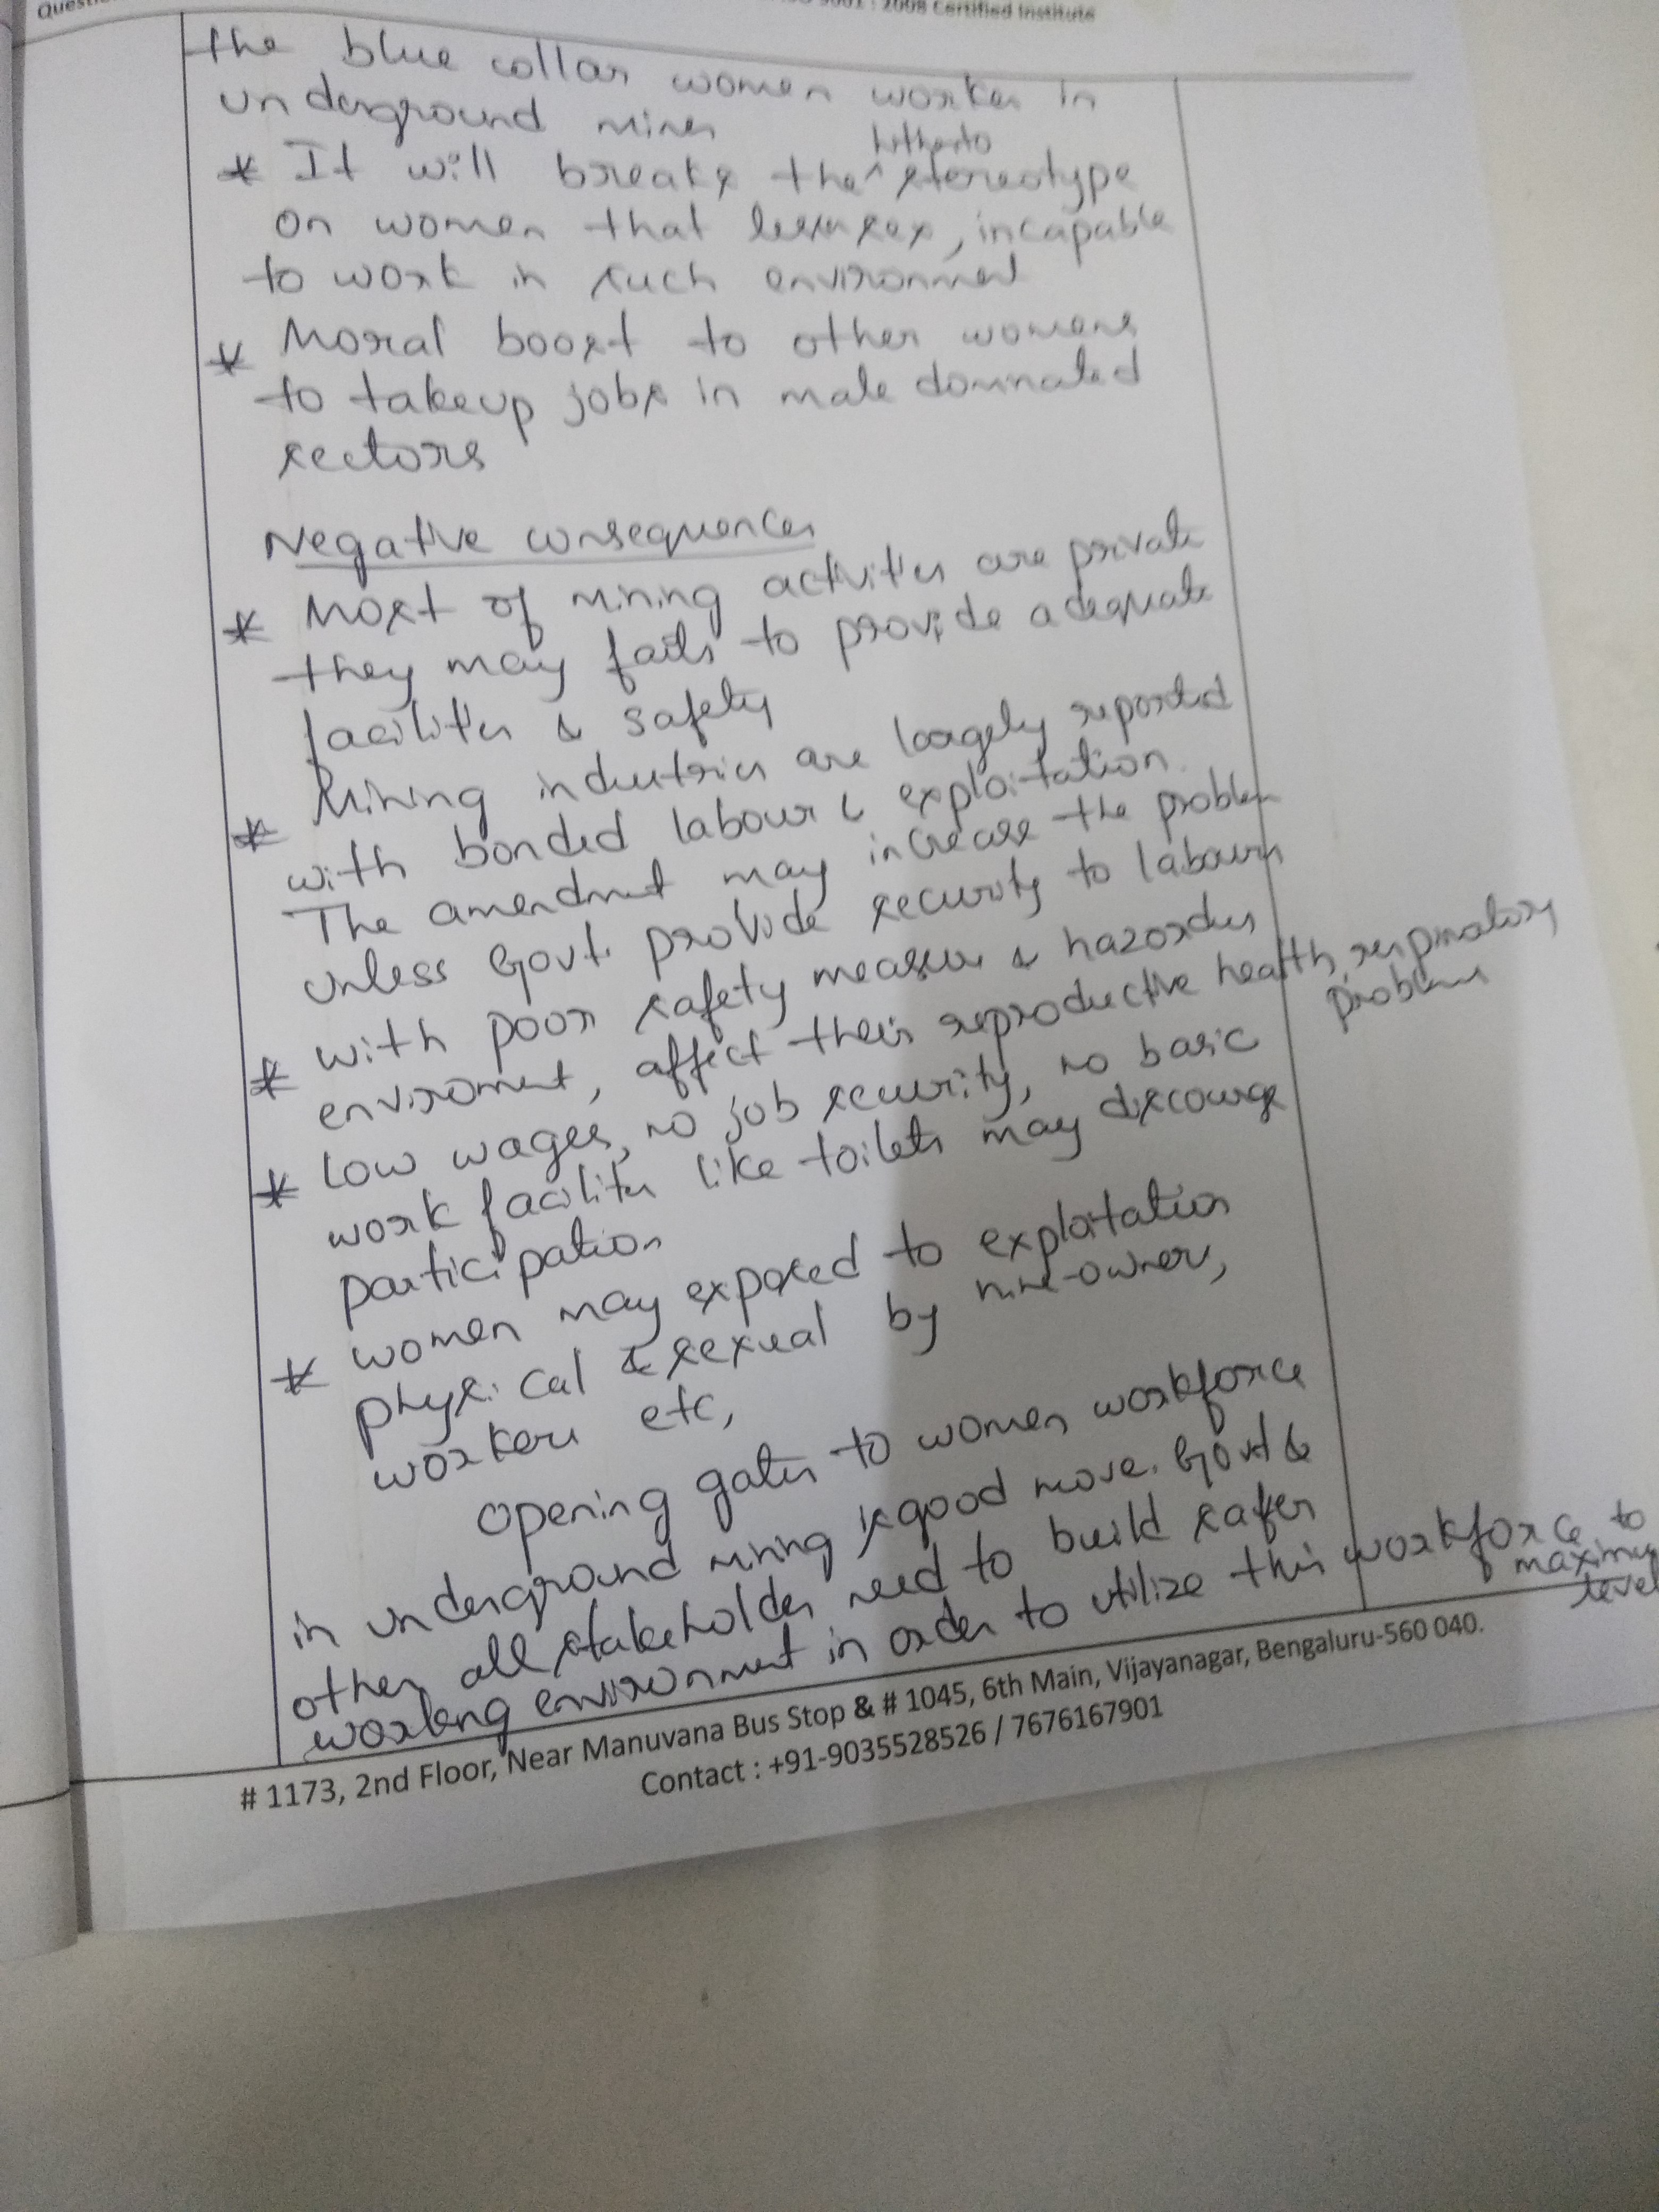 9001 : 2008 Certified Institute
the blue collar women worker in
underground mines
hitherto
* It will breaks the ^ stereotype
on women that lesser sex, incapable
to work in such environment
* Moral boost to other womens
to takeup jobs in male dominated
sectors
Negative consequences
* Most of mining activities are private
they may fails to provide adequate
facilities & safety
* Mining industries are largely reported
with bonded labour & exploitation.
The amendment may increase the problem
unless Govt. provide security to labours
* with poor safety measures & hazordus
enviroment, affect their reproductive health, respiratory
problems
* Low wages, no job security, no basic
work facilities like toilets may discourage
participation
* women may exposed to exploitation
physical & sexual by mine-owner,
workers etc,
Opening gates to women workforce
in underground mining is good move. Govt &
other all stakeholders need to build safer
working environment in order to utilize this workforce to
maximum
level
# 1173, 2nd Floor, Near Manuvana Bus Stop & # 1045, 6th Main, Vijayanagar, Bengaluru-560 040.
Contact : +91-9035528526 / 7676167901